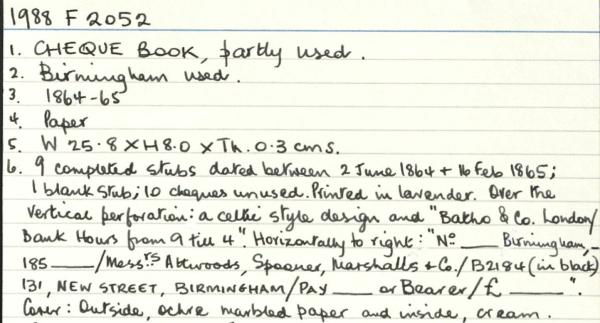 1988 F 2052
1. CHEQUE BOOK, partly used.
2. Birmingham used.
3. 1864-65
4. Paper
5. W 25.8 X H 8.0 X Th. 0.3 cms.
6. 9 completed stubs dated between 2 June 1864 + 16 Feb 1865;
1 blank stub; 10 cheques unused. Printed in lavender. Over the
vertical perforation: a celtic style design and "Batho & Co. London/
Bank Hours from 9 till 4". Horizontally to right: "No ____ Birmingham,-
185 ____/Messrs Attwoods, Spooner, Marshalls & Co./B2184 (in black)
131, NEW STREET, BIRMINGHAM/PAY ____ or Bearer/£ ____".
Cover: Outside, ochre marbled paper and inside, cream.